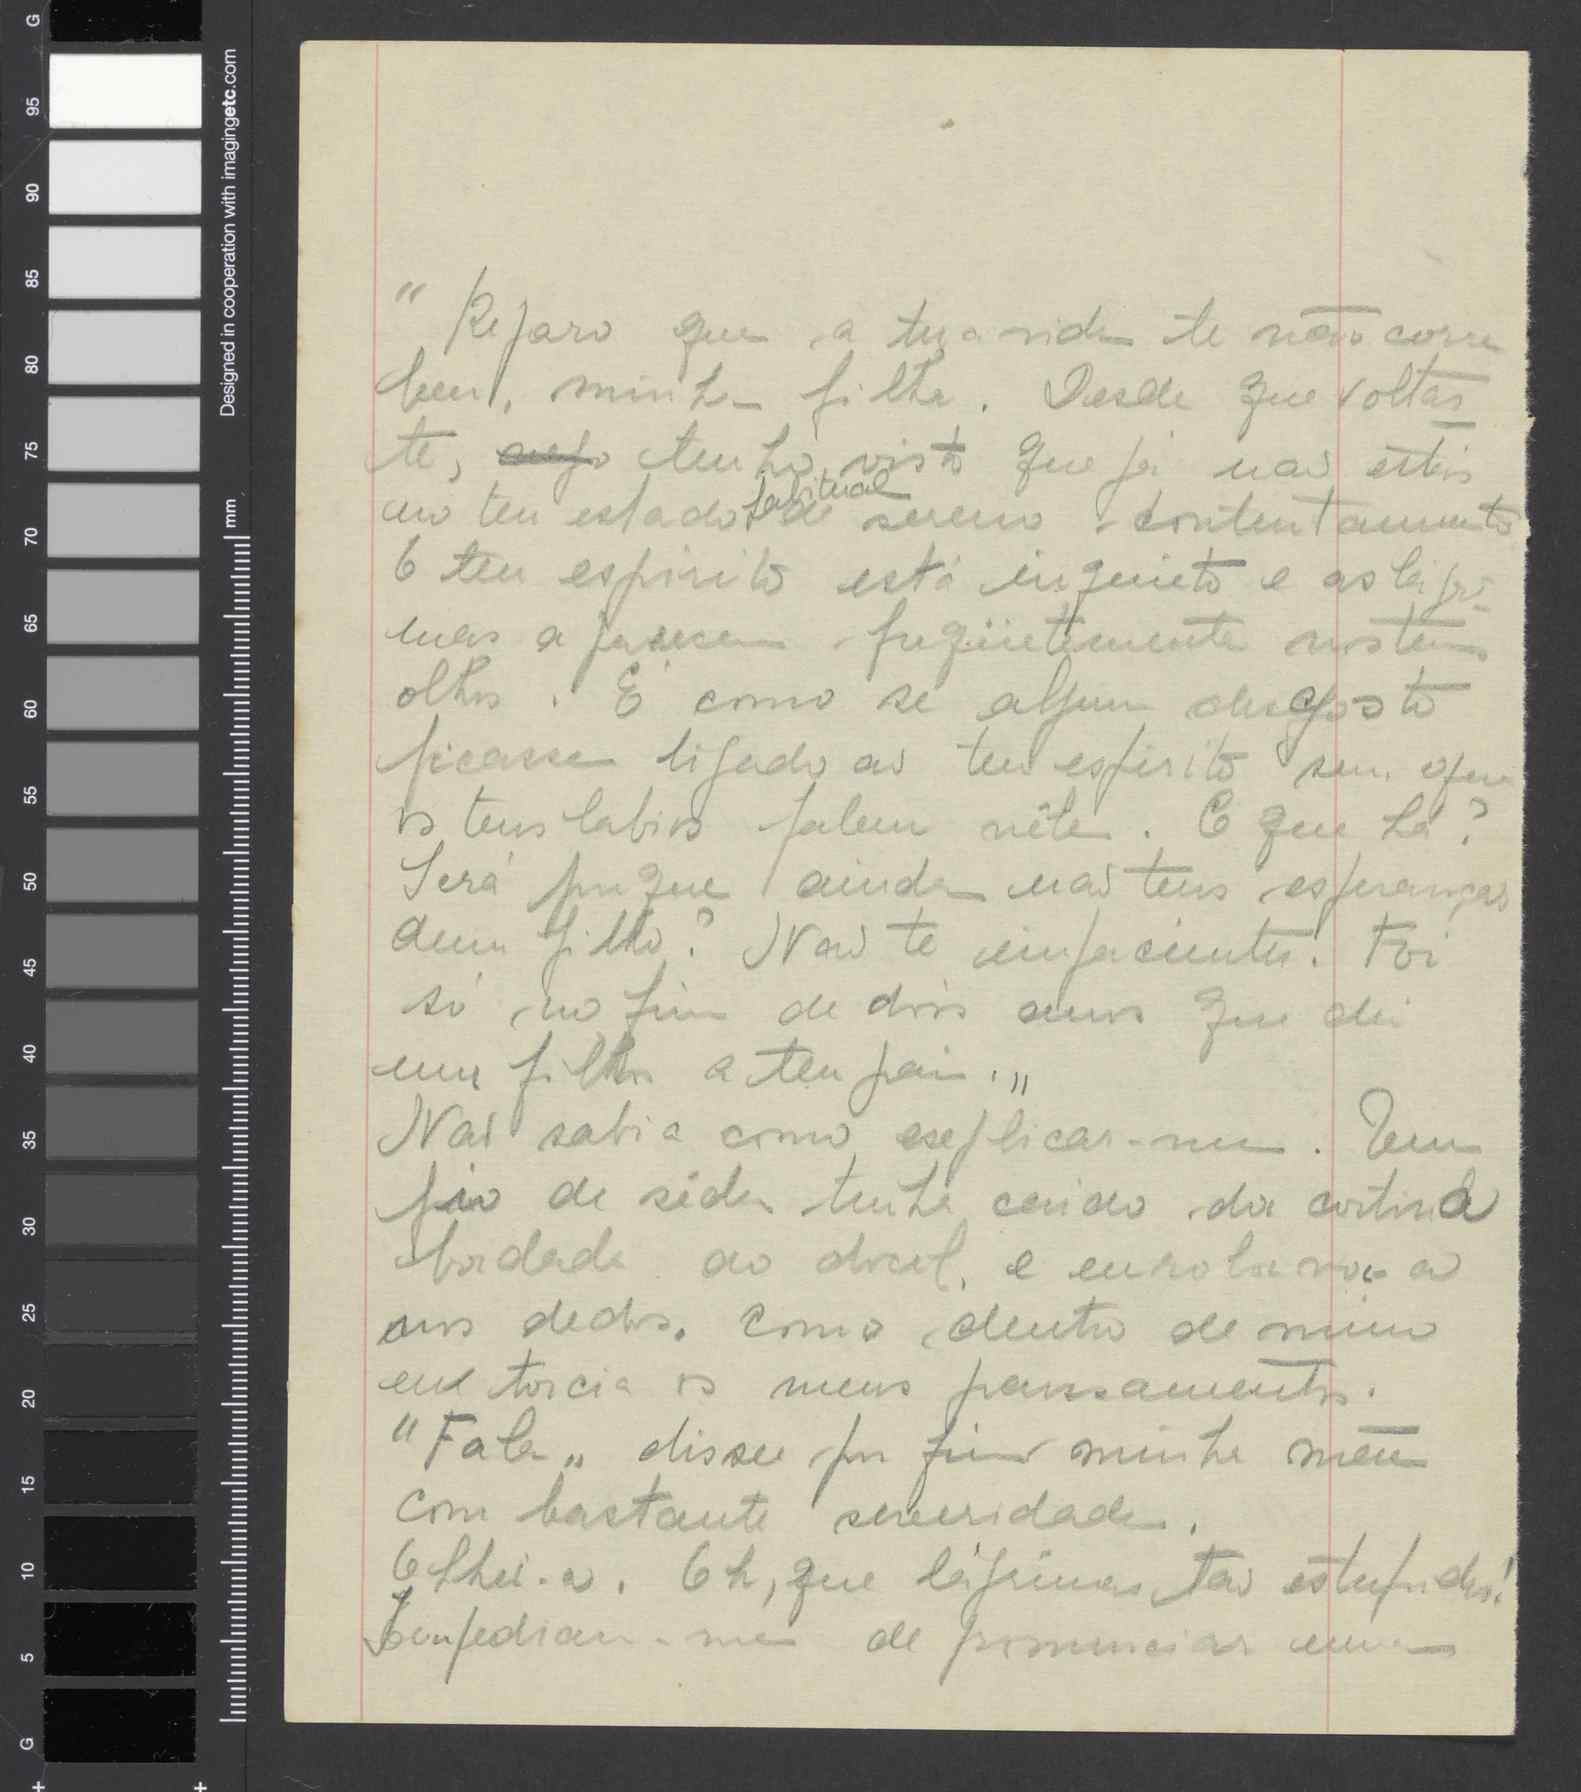 " Reparo que a tua vida te não corre
bem, minha filha. Desde que voltas
te, vejo tenho visto que já não estás
no teu estado habitual de sereno contentamento
O teu espirito está inquieto e as lágri-
mas aparecem freqüetemente nos teus
olhos. É como se algum desgosto
ficasse ligado ao teu espirito sem que
os teus labios falem nêle. O que há?
Será porque ainda não tens esperanças
dum filho? Não te impacientes. Foi
só no fim de dois anos que dei
um filho a teu pai."
Não sabia como explicar-me. Um
fio de sêda tinha caido da cortina
bordada do docel, e enrolava-o
nos dedos. Como dentro de mim
eu torcia os meus pensamentos.
"Fala" disse por fim minha mãe
com bastante severidade.
Olhei-a. Oh, que lágrimas tão estupidas!
Impediam-me de pronunciar uma
G
95
90
85
80
75
70
65
60
55
50
45
40
35
30
25
20
15
10
5
G
Designed in cooperation with imagingetc.com
mm